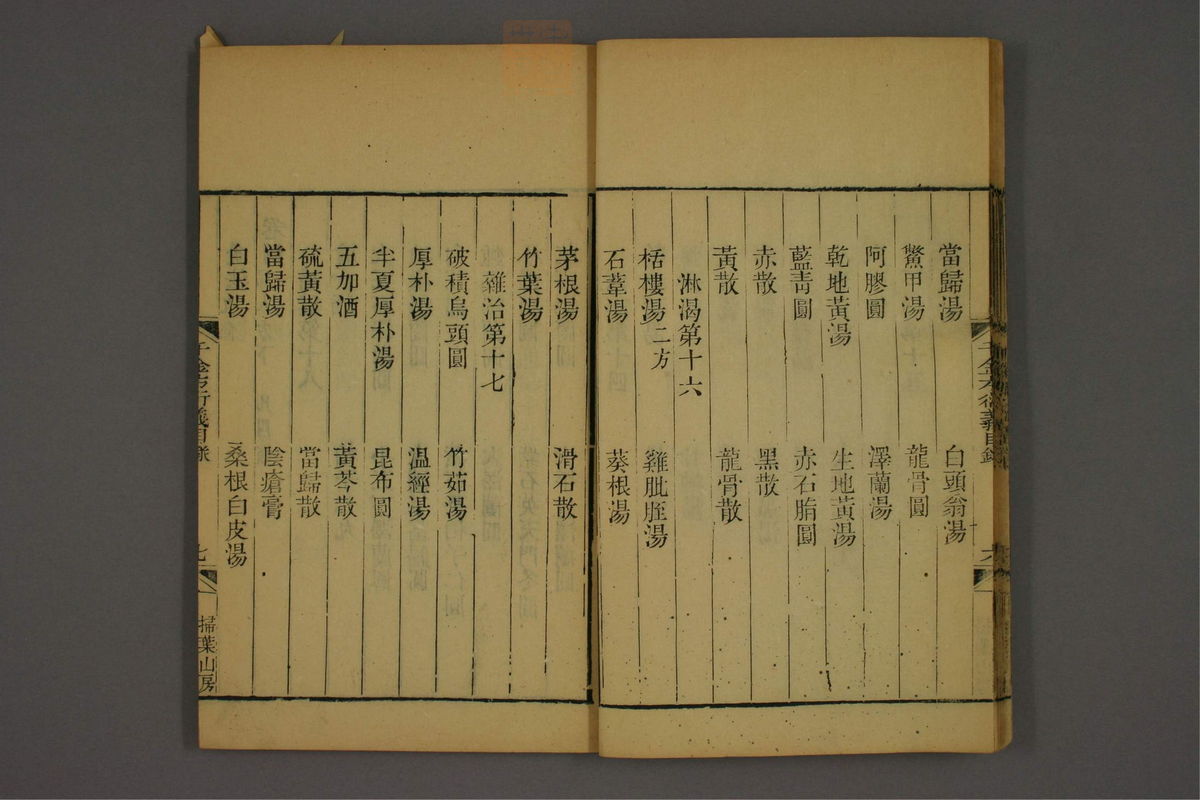 當歸湯 白頭翁湯
鱉甲湯 龍骨圓
阿膠圓 澤蘭湯
乾地黃湯 生地黃湯
藍青圓 赤石脂圓
赤散 黑散
黃散 龍骨散
淋渴第十六
栝樓湯二方 雞肶胵湯
石葦湯 葵根湯
茅根湯 滑石散
竹葉湯
雜治第十七
破積烏頭圓 竹茹湯
厚朴湯 温經湯
半夏厚朴湯 昆布圓
五加酒 黃芩散
硫黃散 當歸散
當歸湯 陰瘡膏
白玉湯 桑根白皮湯
千金方衍義目錄 七
掃葉山房